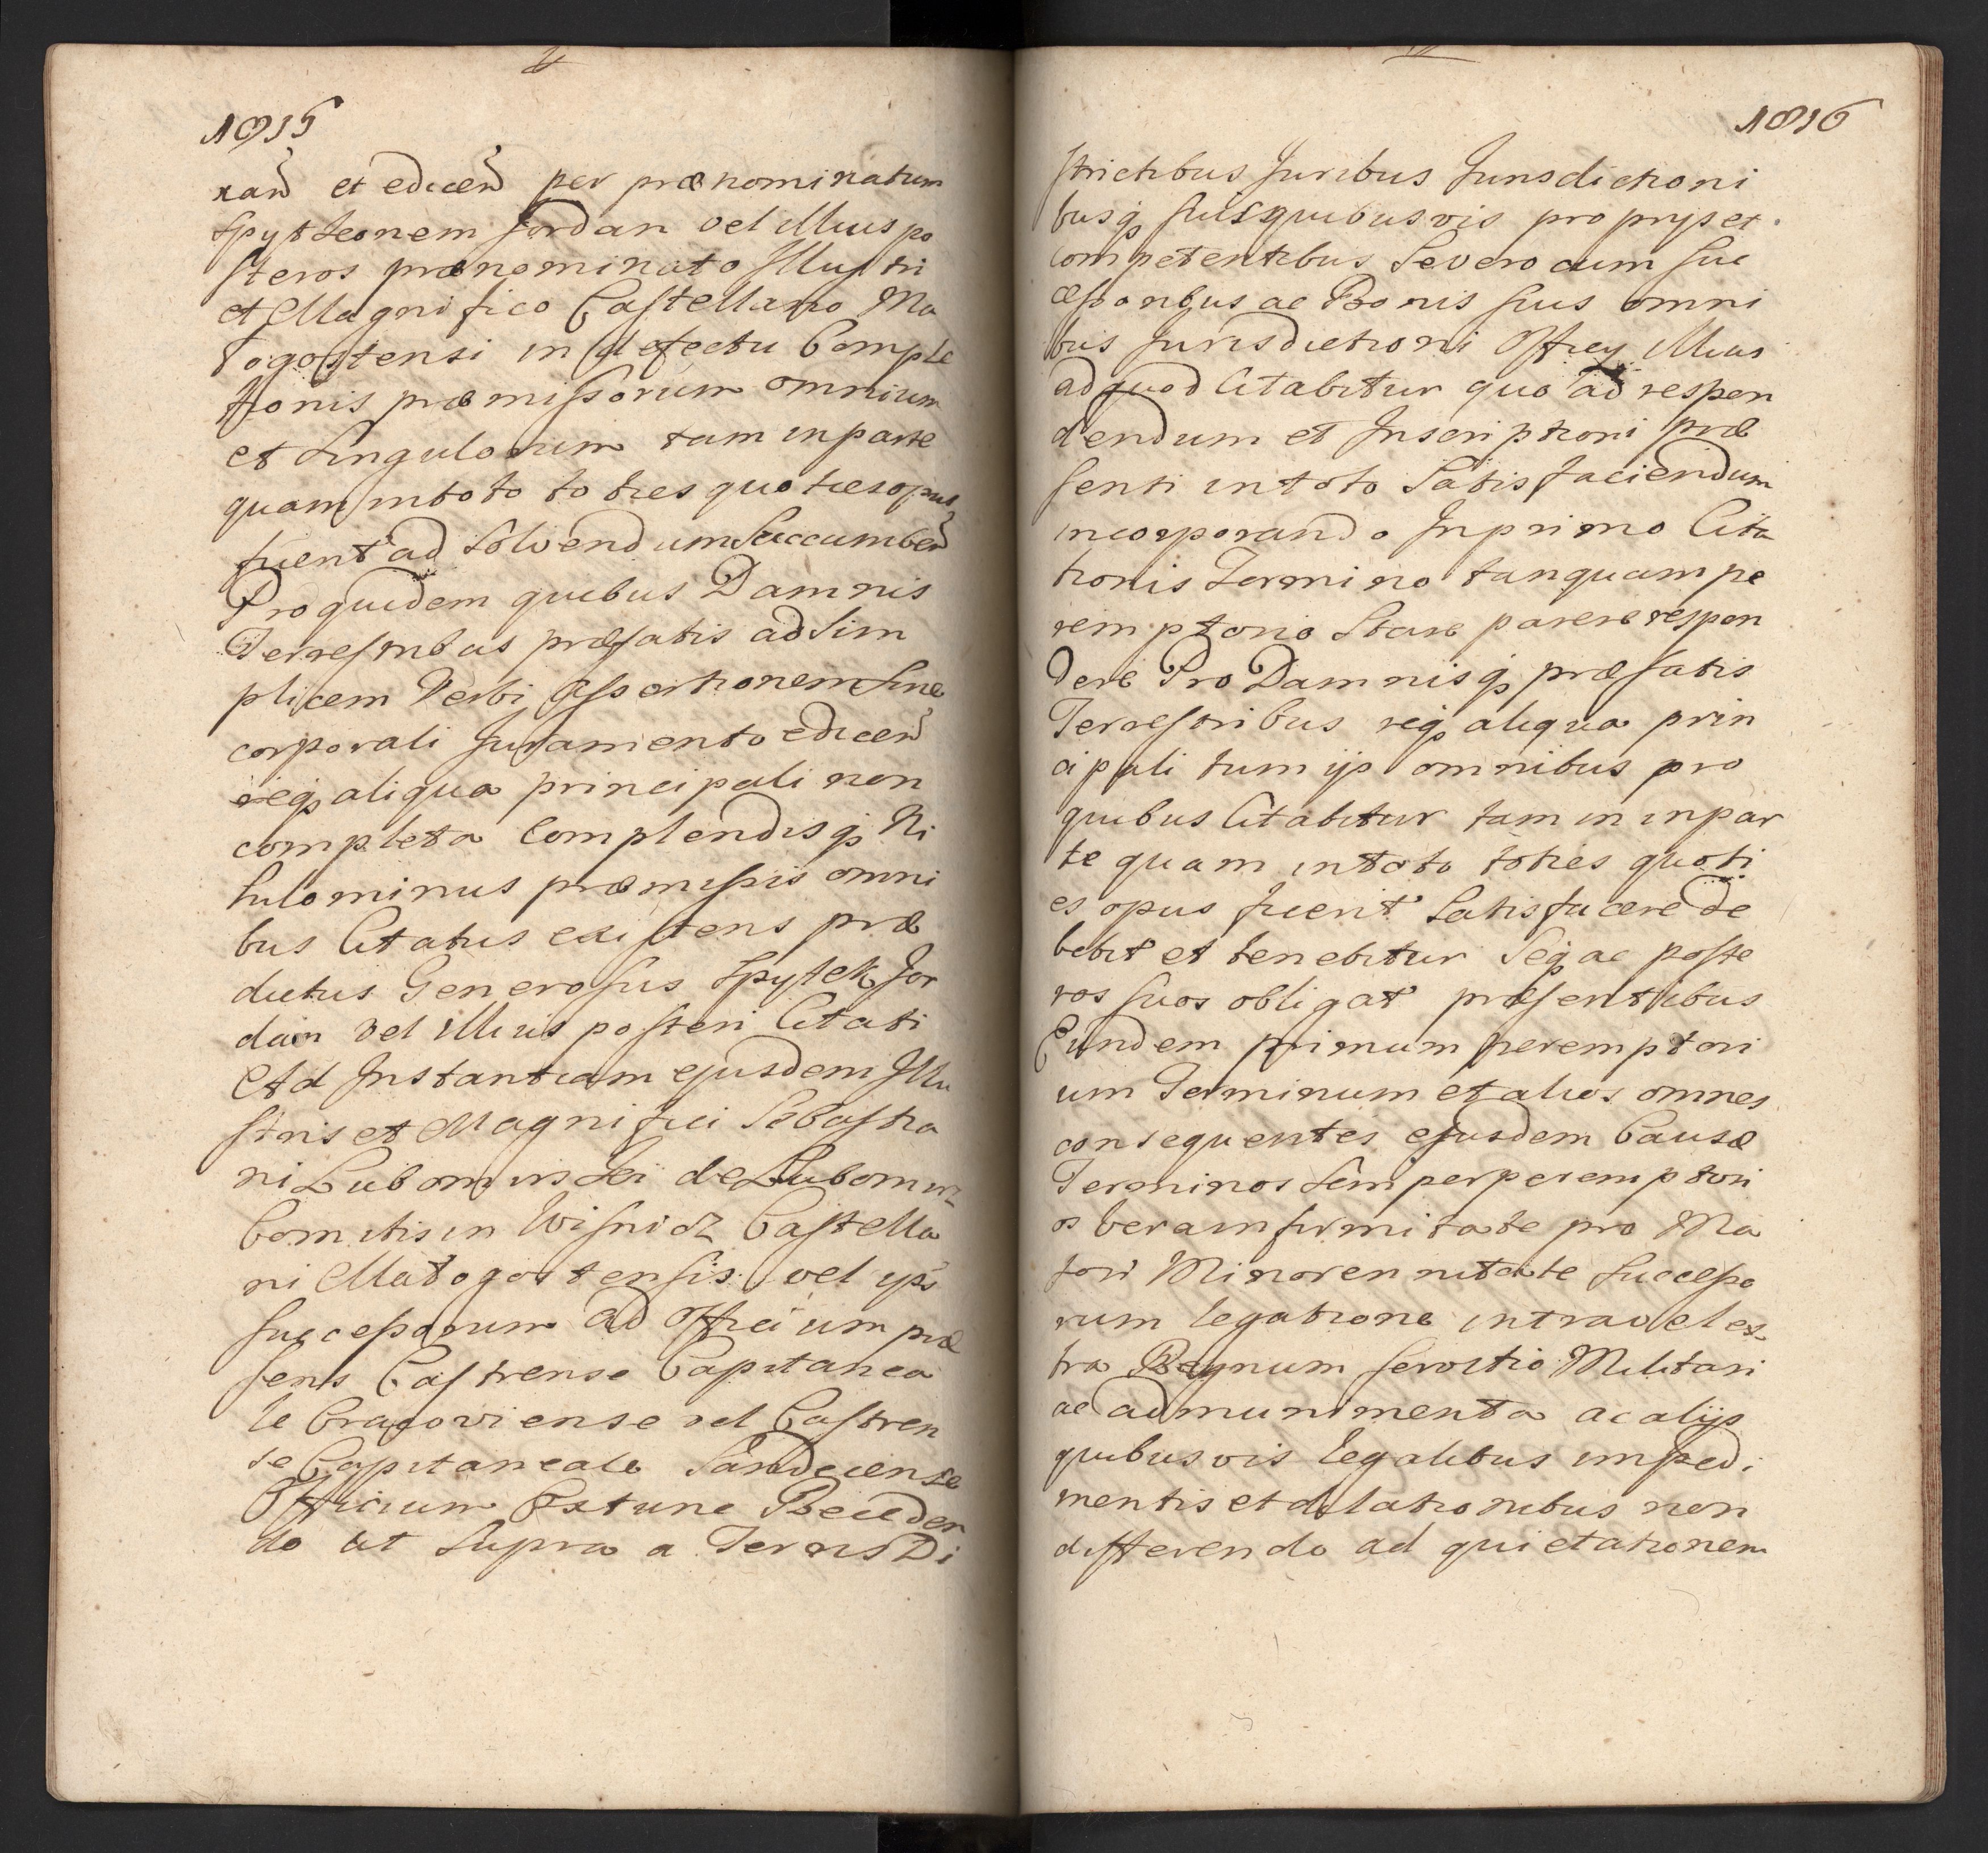 1815
rand et edicend per prænominatum
Spytkonem Jordan vel illius po
steros prænominato Illustri
et Magnifico Castellano Ma
łogostensi in defectu Comple
tionis præmissorum omnium
et Singulorum tam in parte
quam in toto toties quoties opus
fuerit ad Solvendum Succumbend
Pro quidem quibus Damnis
Terrestribus præfatis ad Sim
plicem Verbi assertionem Sine
corporali Juramento edicend
reiq3 aliqua principali non
completa Complendisq3 Ni
hilominus præmissis omni
bus Citatus existens præ
dictus Generosus Spytek Jor
dan vel illius posteri Citati
Ad Instantiam ejusdem Illu
stris et Magnifici Sebastia
ni Lubomirski de Lubomirz
Comitis in Wisnicz Castella
ni Małogostensis vel ips
Successorum ad Officium præ
sens Castrense Capitanea
le Cracoviense vel Castren
se Capitaneale Sandecense
Officium Extunc Recceden
do ut Supra a Terris Di
1816
strictibus Juribus Jurisdictioni
busq3 suis quibusvis proprys et
competentibus Se vero cum suc
cessoribus ac Bonis suis omni
bus Jurisdictioni Officy illius
ad quod Citabitur quo ad respon
dendum et Inscriptioni præ
senti in toto Satisfaciendum
incorporando In primo Cita
tionis Termino tanquam pe
remptorio Stare parere respon
dere Pro Damnisq3 præfatis
Terrestribus reiq3 aliqua prin
cipali tum ijs omnibus pro
quibus Citabitur tam in in par
te quam in toto toties quoti
es opus fuerit Satisfacere de
bebit et tenebitur Seq3 ac poste
ros suos obligat præsentibus
Eundem primum peremptori
um Terminum et alios omnes
consequentes ejusdem Causæ
Terminos Semper peremptori
os vera infirmitate pro Ma
jori Minorennitate Successo
rum legatione intra vel ex
tra Regnum servitio Militari
ac ad munimenta ac alijs
quibusvis legalibus impedi
mentis et dilationibus non
differendo ad quietationem